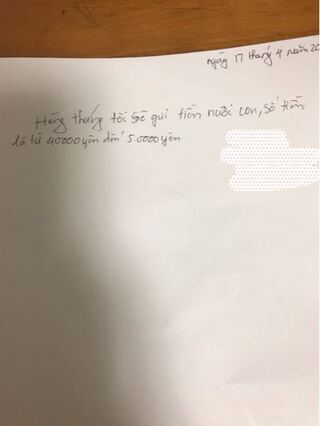 ngày 17 tháng 4 năm 20
Hàng tháng tôi sẽ gửi tiền nuôi con, số tiền
là từ 40000 yên đến 50000 yên